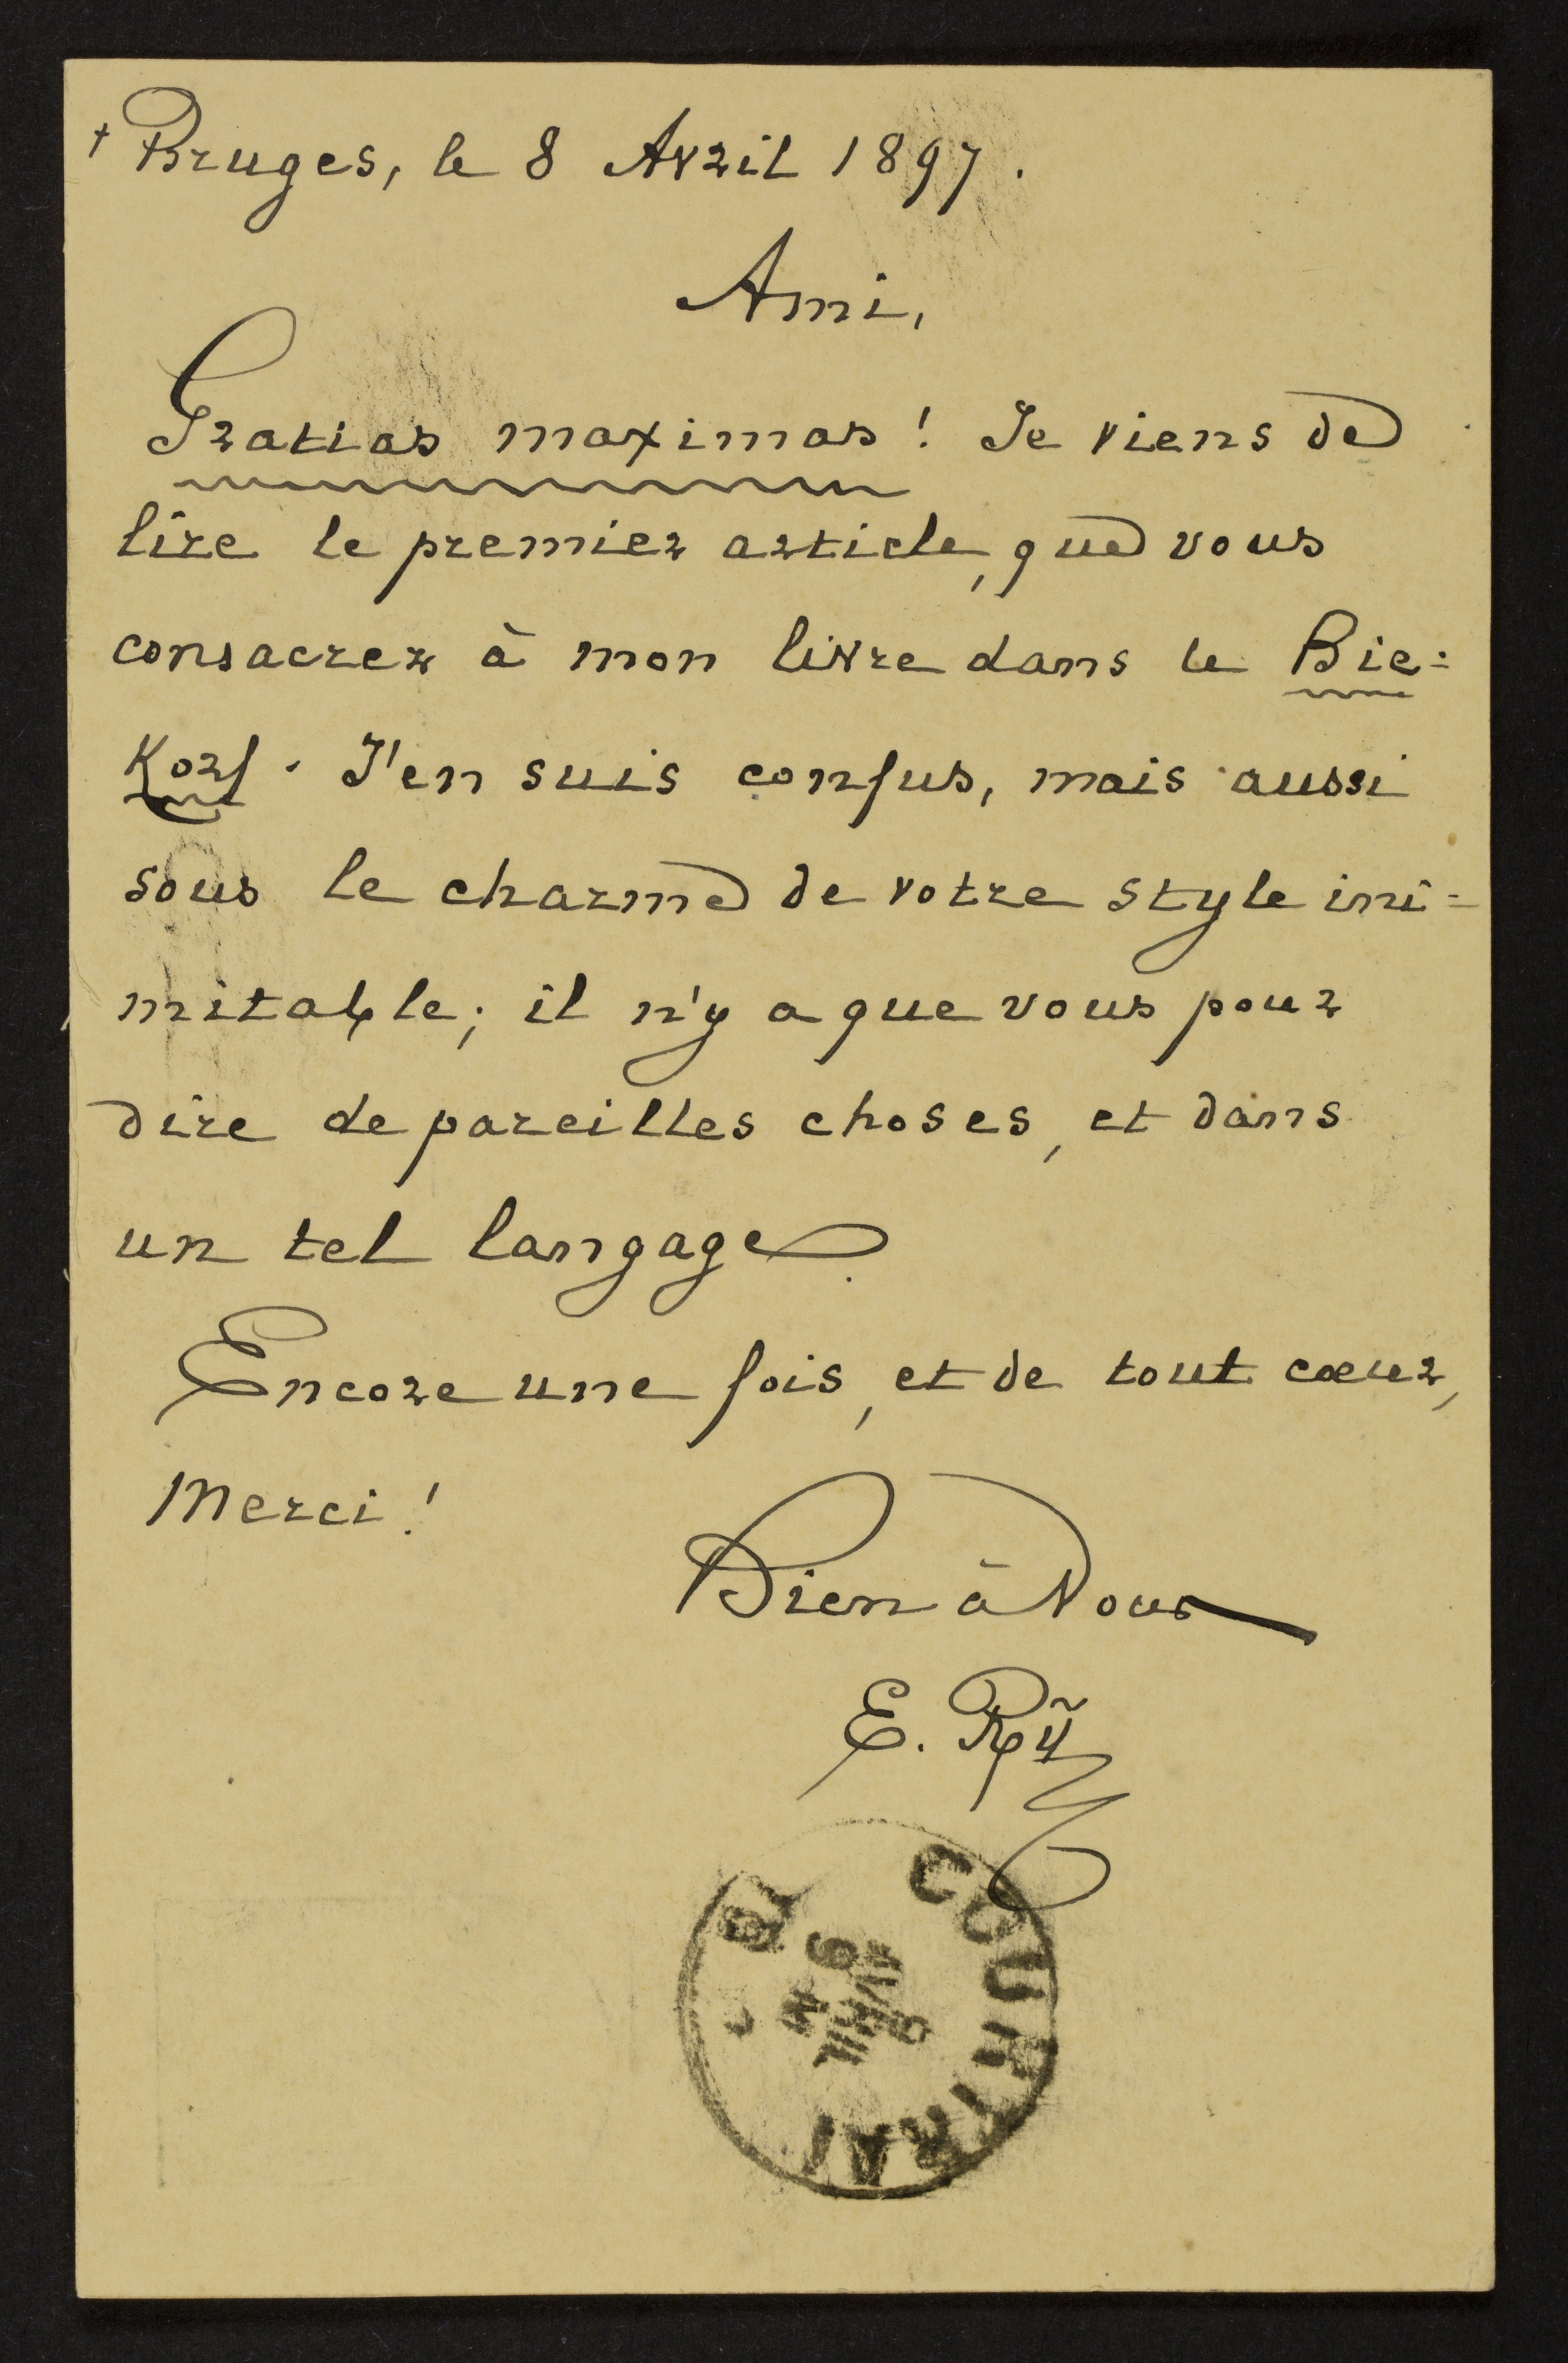 † Bruges, le 8 Avril 1897.
Ami,
Gratias maximas! Je viens de
lire le premier article, que vous
consacrez à mon livre dans le Bie=
Korf. J'en suis confus, mais aussi
sous le charme de votre style ini=
mitable; il n'y a que vous pour
dire de pareilles choses, et dans
un tel langage.
Encore une fois, et de tout cœur,
Merci!
Bien à Vous
E. Rÿ
COURTRAI
9
AVRIL